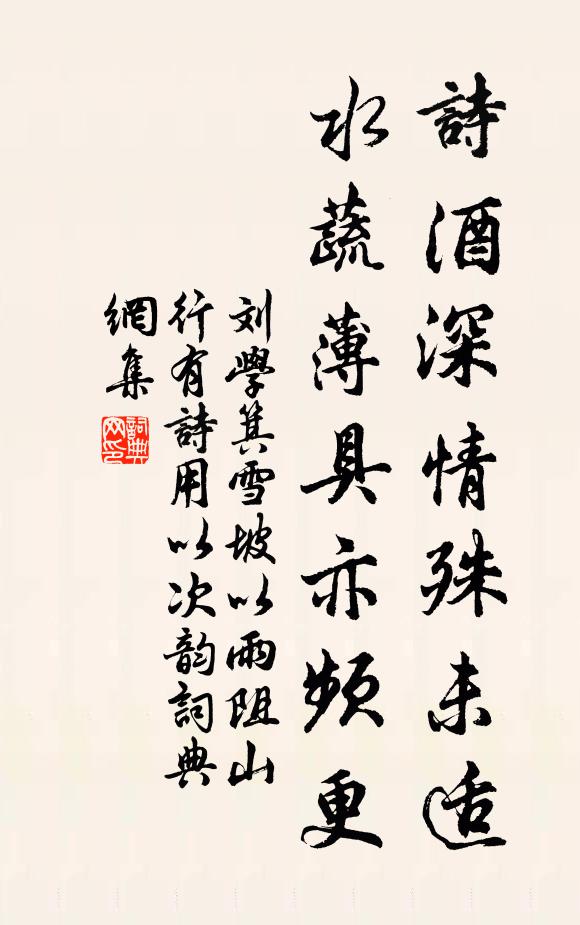 詩酒深情殊未适
水蔬薄具亦頻更
刘學箕雪坡以雨阻山
行有詩用以次韵詞典
網集
詞典
网印